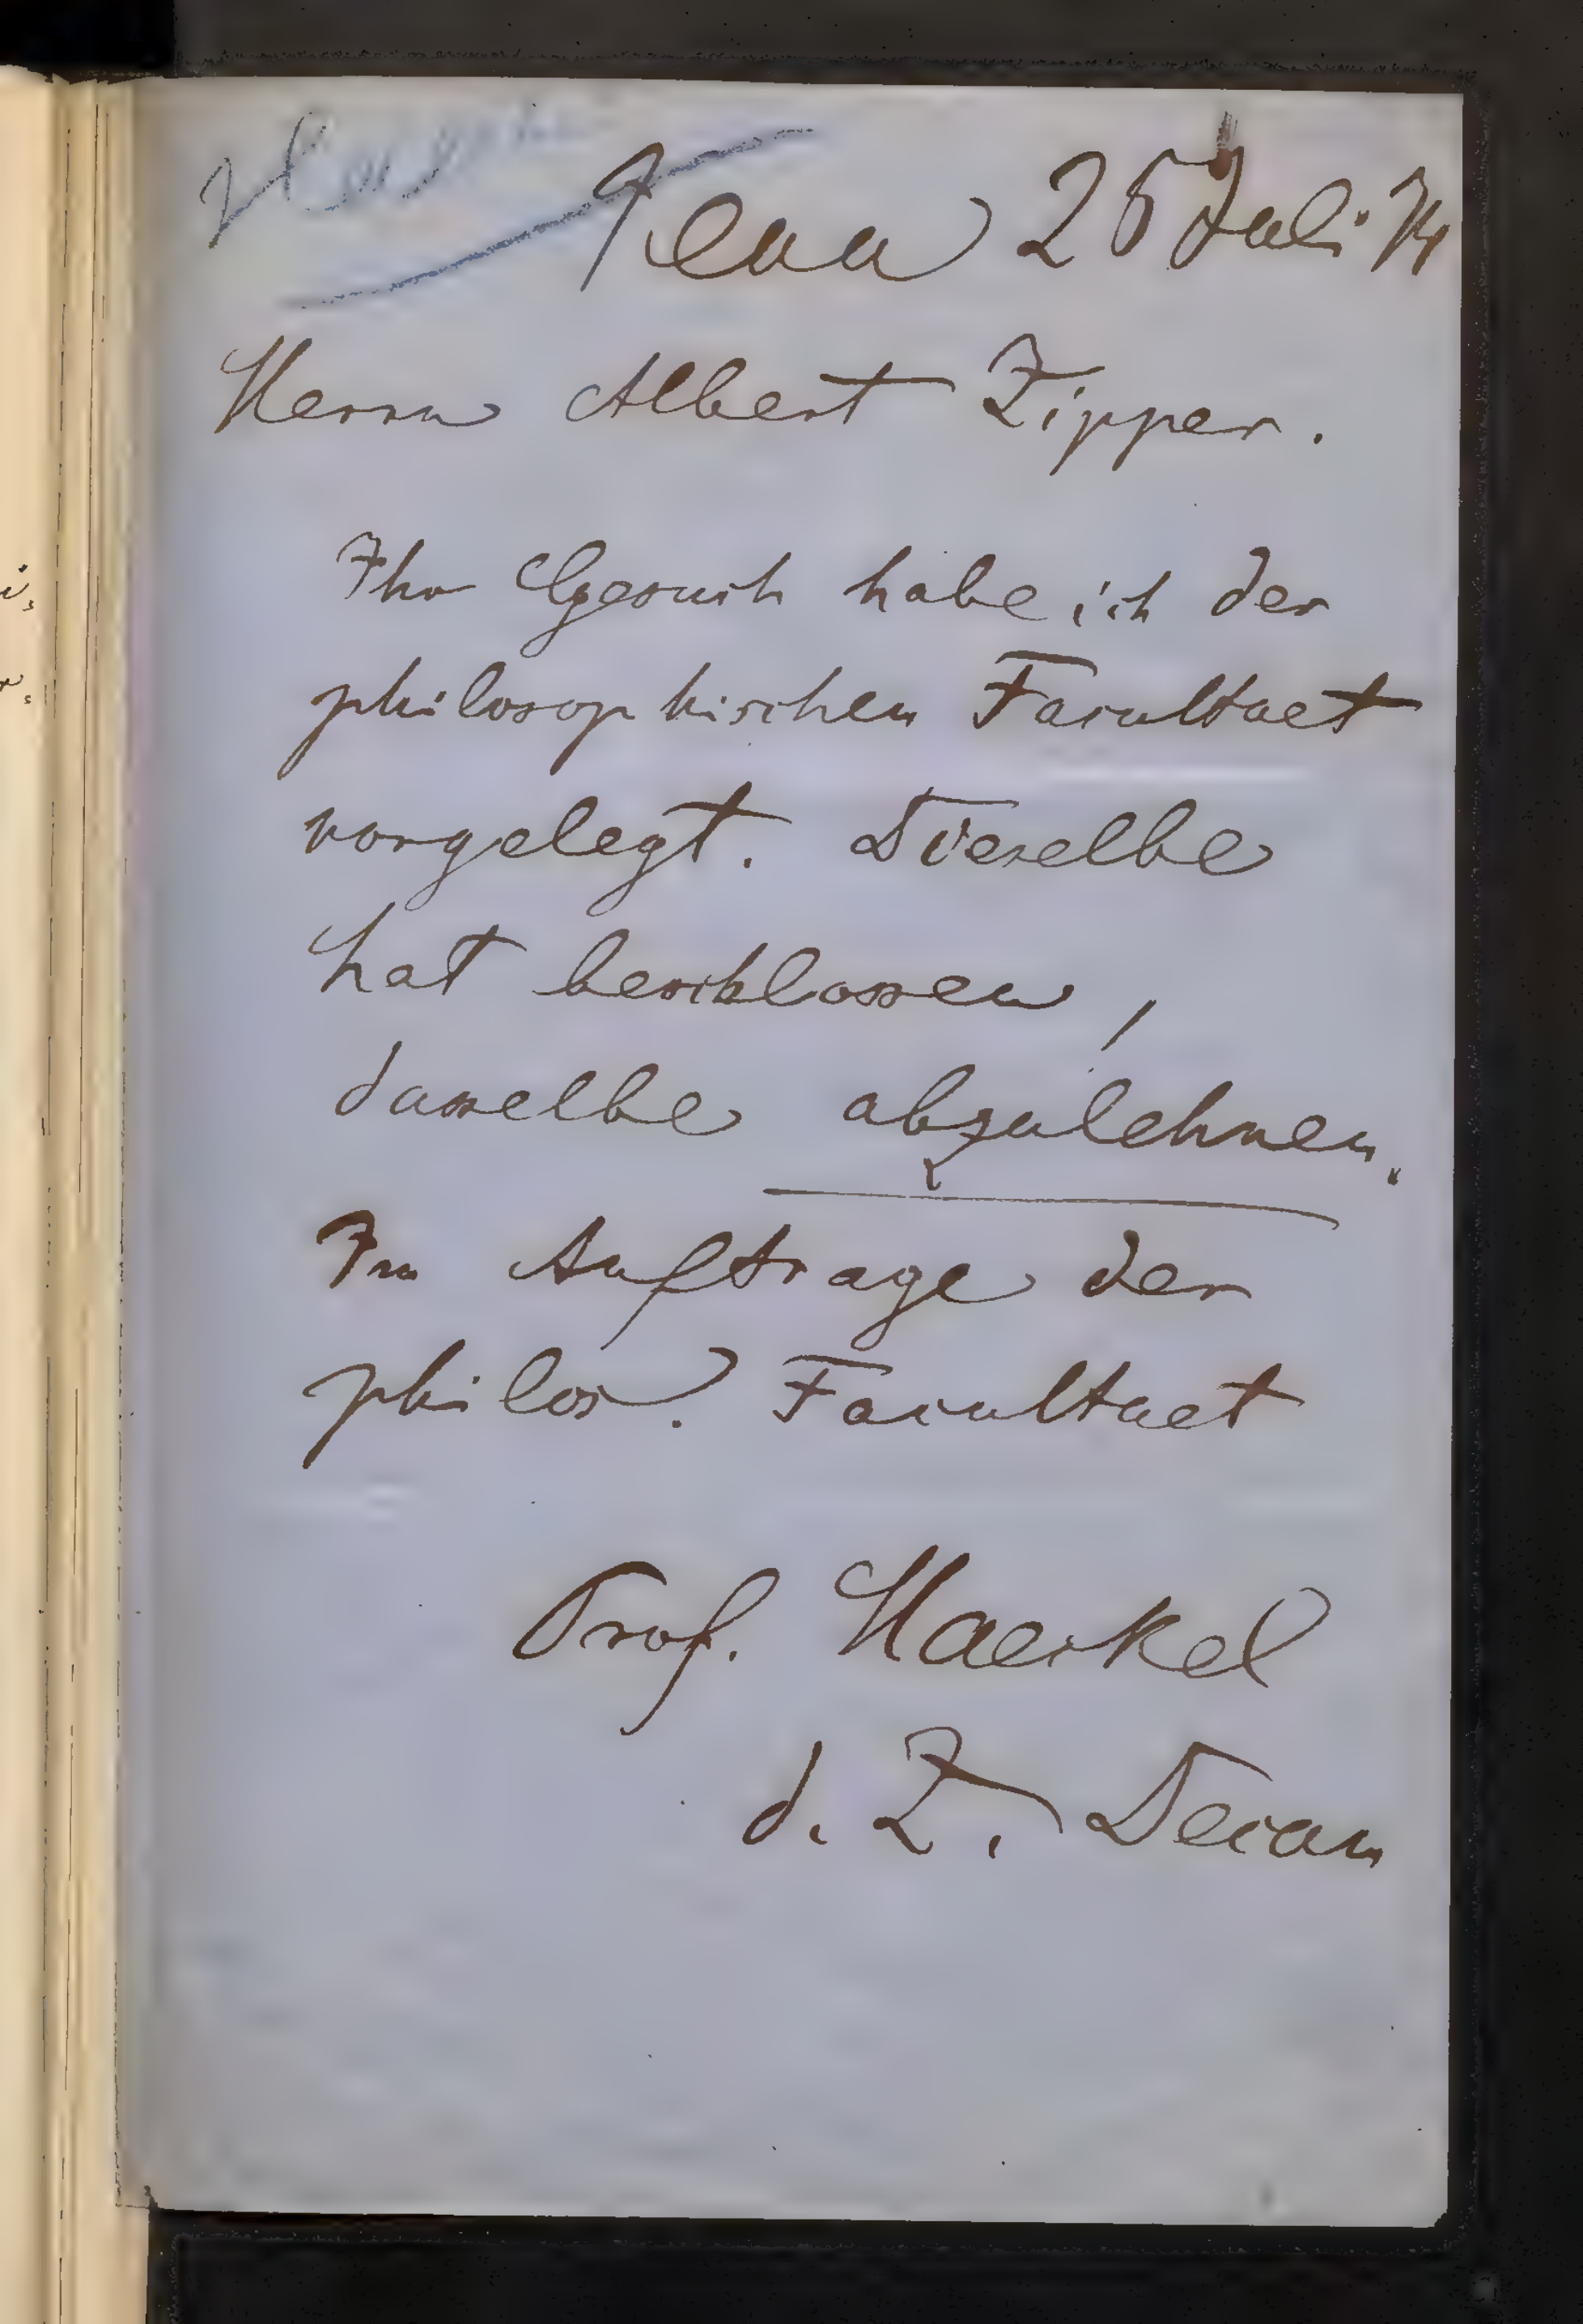 Jena 25 Juli 74
Herrn Albert Zipper.
Ihr Gesuch habe ich der
philosophischen Facultaet
vorgelegt. Dieselbe
hat beschlossen,
dasselbe abzulehnen.
Im Auftrage der
philos. Facultaet
Prof. Haeckel
d. Z. Decan